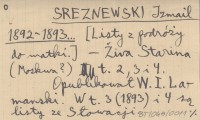 SREZNEWSKI Izmaił
1892-1893... [Listy z podróży
do matki.] - Živa Starina
(Moskwa?) t. 2, 3 i 4.
Opublikował W. I. Lar-
manski. W t. 3 (1893) i 4 są
listy ze Słowacji